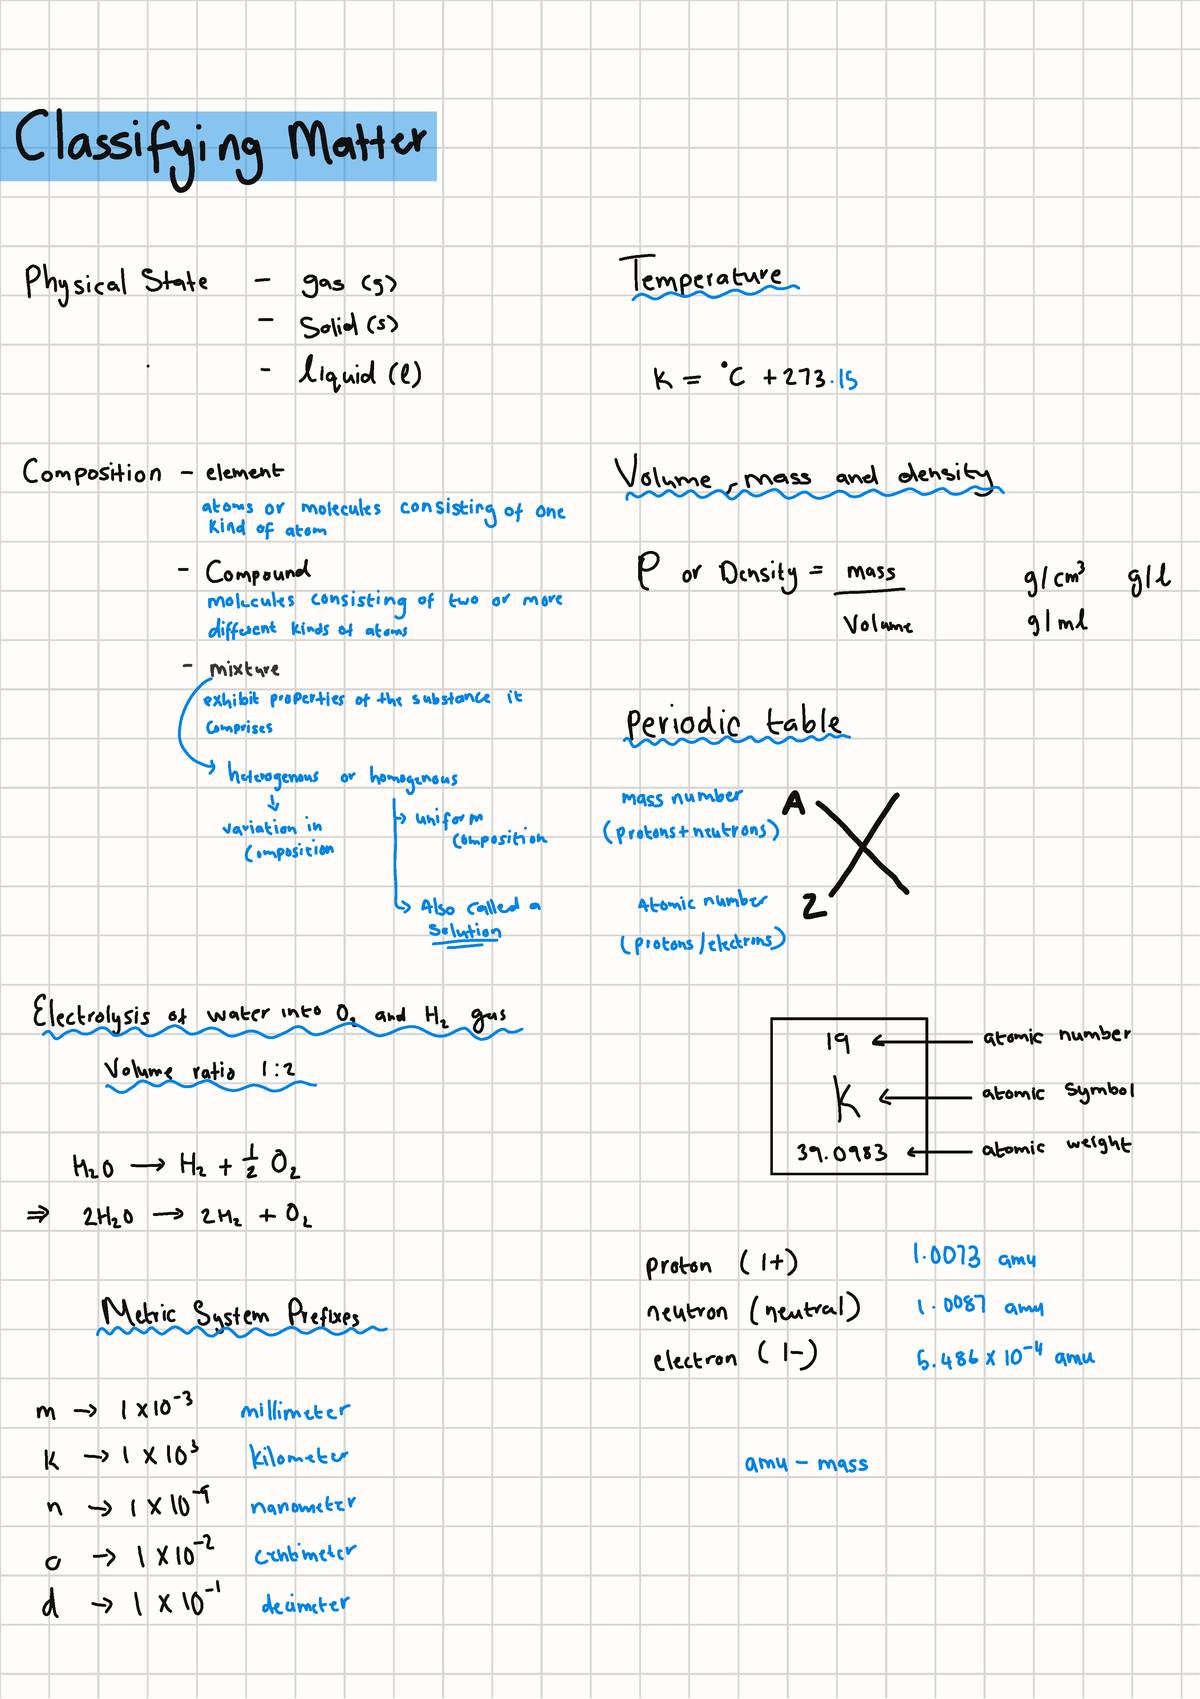 Classifying Matter
Physical State - gas (g)
- Solid (s)
- liquid (l)
Composition - element
atoms or molecules consisting of one
kind of atom
- Compound
molecules consisting of two or more
different kinds of atoms
- mixture
exhibit properties of the substance it
comprises
heterogenous or homogenous
↓
variation in
composition
→ uniform
composition
→ Also called a
solution
Electrolysis of water into O₂ and H₂ gas
Volume ratio 1:2
H₂O → H₂ + ½ O₂
⇒ 2H₂O → 2H₂ + O₂
Metric System Prefixes
m → 1 × 10⁻³ millimeter
K → 1 × 10³ kilometer
n → 1 × 10⁻⁹ nanometer
c → 1 × 10⁻² centimeter
d → 1 × 10⁻¹ decimeter
Temperature
K = °C + 273.15
Volume, mass and density
ρ or Density = mass
Volume
g/cm³ g/l
g/ml
Periodic table
mass number A
(protons+neutrons)
X
Atomic number Z
(protons/electrons)
19 ← atomic number
K ← atomic symbol
39.0983 ← atomic weight
proton (1+) 1.0073 amu
neutron (neutral) 1.0087 amu
electron (1-) 5.486 × 10⁻⁴ amu
amu - mass